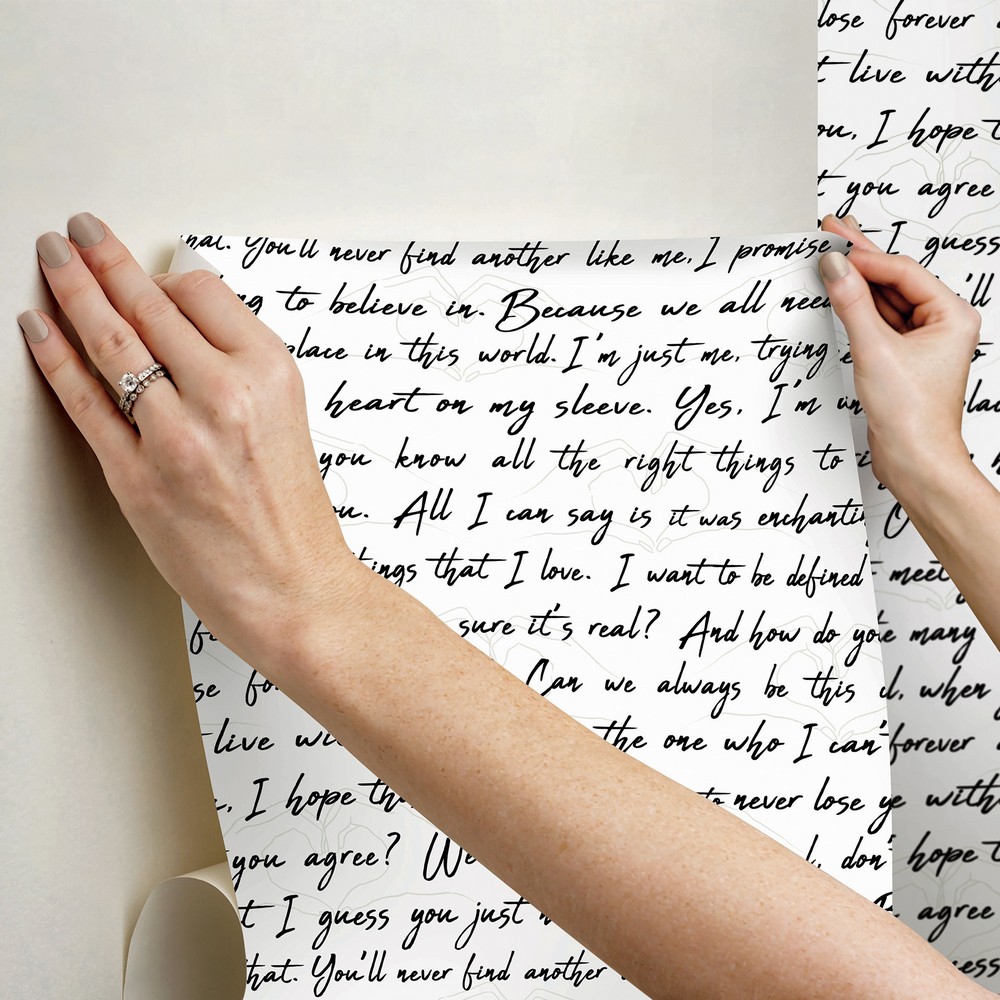 You'll never find another like me, I promise
to believe in. Because we all need
place in this world. I'm just me, trying
heart on my sleeve. Yes, I'm
you know all the right things to
All I can say is it was
that I love. I want to be defined
sure it's real? And how do
Can we always be this
live the one who I can't
I hope never lose
you agree? We
I guess you just
that. You'll never find another
lose forever
live
I hope
you agree
I guess
meet
many
when
forever
hope
agree